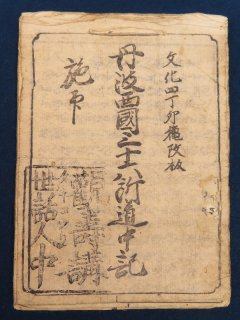 文化四丁卯龝改板
丹波西國三十七所道中記
施印
世話人中